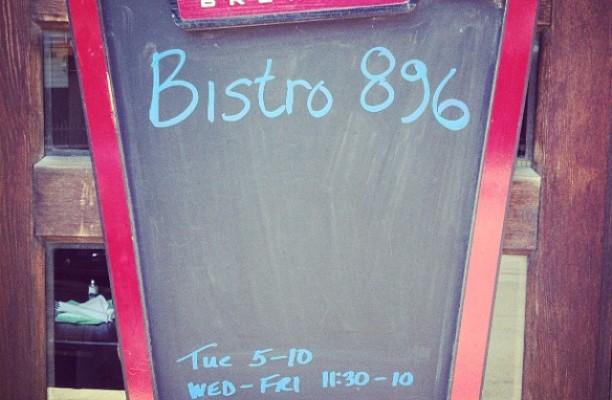 Bistro 896
Tue 5-10
WED-FRI 11:30-10